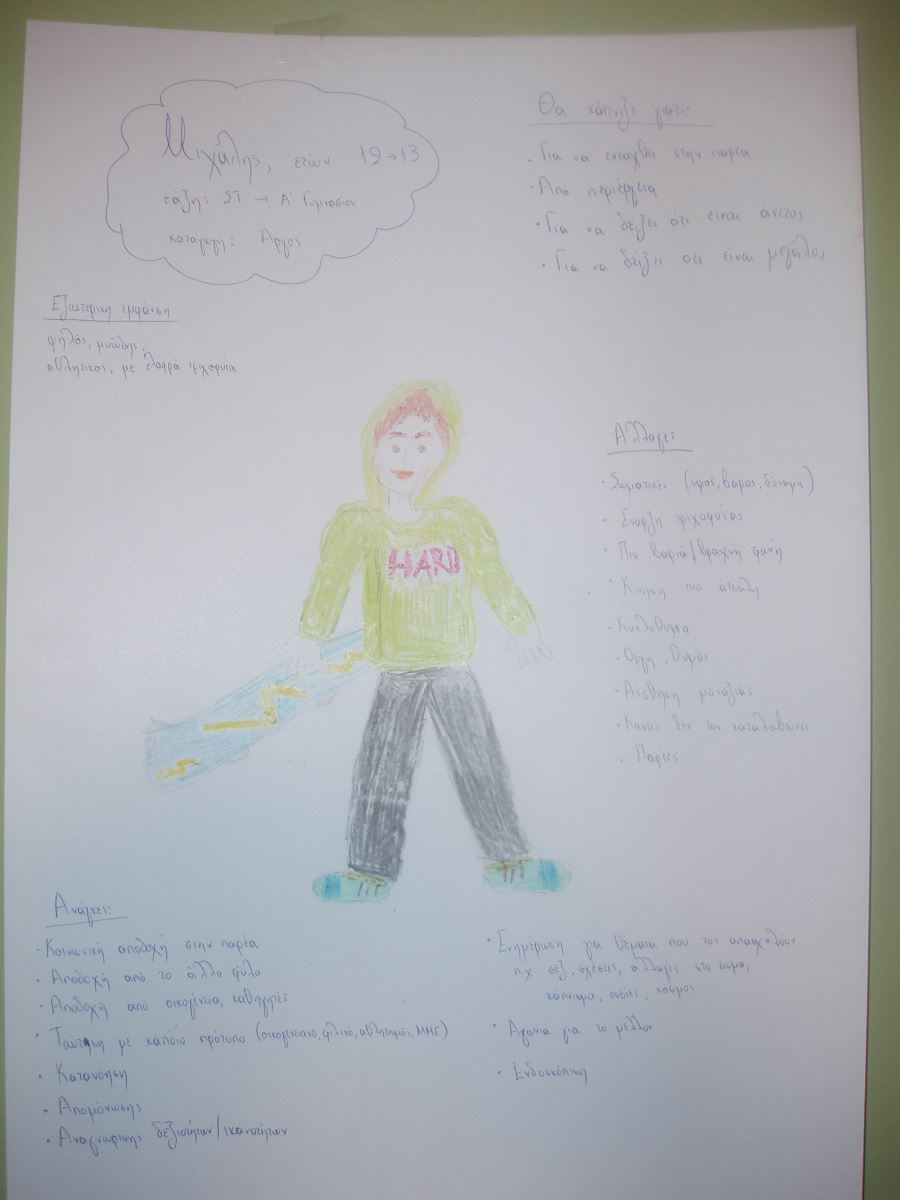 Μιχάλης, ετών 12→13
τάξη: ΣΤ → Α' Γυμνασίου
καταγωγή: Άργος
Θα κάπνιζε γιατί:
· Για να ενταχθεί στην παρέα
· Από περιέργεια
· Για να δείξει ότι είναι άνετος
· Για να δείξει ότι είναι μεγάλος
Εξωτερική εμφάνιση
ψηλός, μυώδης,
αθλητικός, με ελαφρά τριχοφυΐα
HARD
Αλλαγές
· Σωματικές (ύψος, βάρος, δύναμη)
· Έναρξη τριχοφυΐας
· Πιο βαριά/βραχνή φωνή
· Κίνηση πιο άτσαλη
· Κυκλοθυμία
· Οργή, Θυμός
· Αίσθηση μοναξιάς
· Κανείς δεν τον καταλαβαίνει
· Παρέες
Ανάγκες:
· Κοινωνική αποδοχή στην παρέα
· Αποδοχή από το άλλο φύλο
· Αποδοχή από οικογένεια, καθηγητές
· Ταύτιση με κάποιο πρότυπο (οικογενειακό, φιλικό, αθλητισμός, ΜΜΕ)
· Κατανόηση
· Απομόνωσης
· Αναγνώρισης δεξιοτήτων/ικανοτήτων
· Ενημέρωση για θέματα που τον απασχολούν
π.χ σεξ, σχέσεις, αλλαγές στο σώμα,
κάπνισμα, ουσίες, κόσμος
· Αγωνία για το μέλλον
· Ενδοσκόπηση